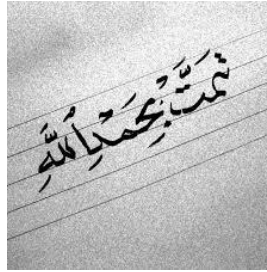 تمت بحمد الله